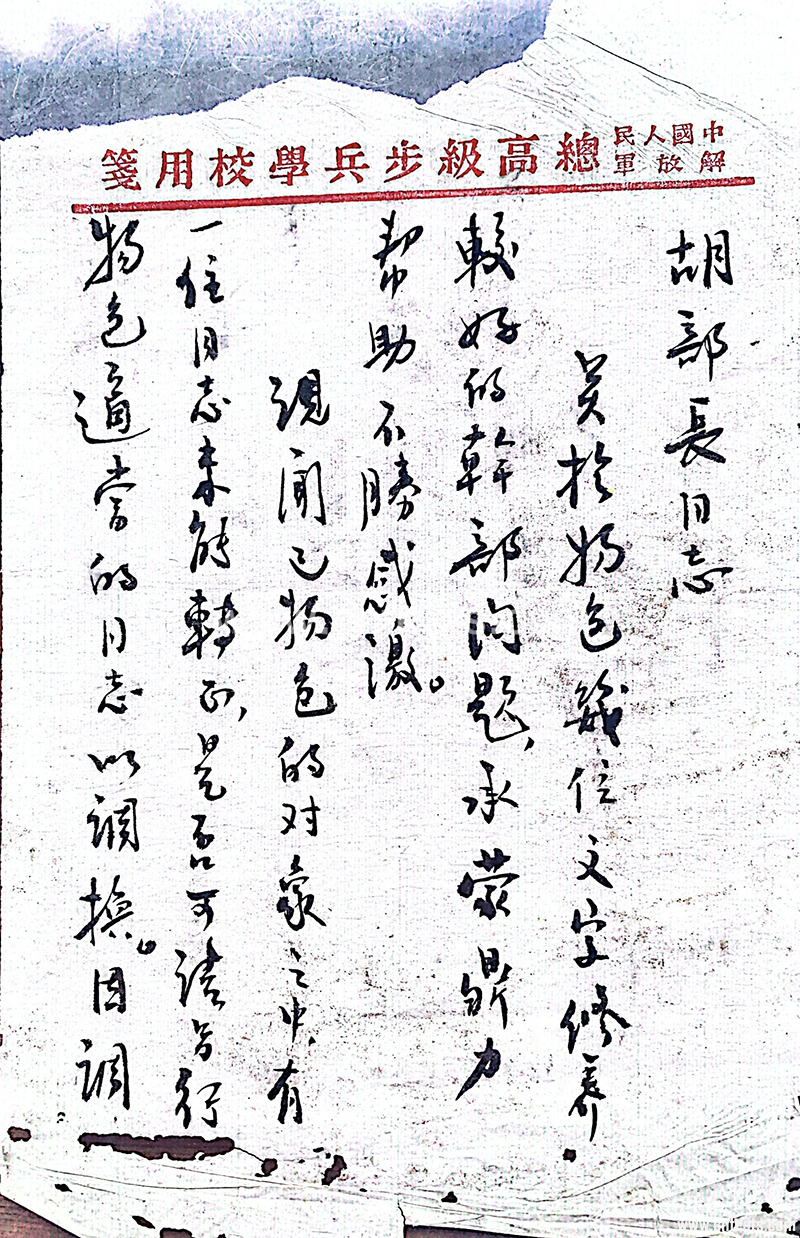 中國人民解放軍總高級步兵學校用箋
胡部長同志
关於物色幾位文字修养
較好的幹部问题，承蒙鼎力
帮助不勝感激。
現闻已物色的对象之中，有
一位同志未能轉正，是否可请另行
物色適當的同志以調换。因調